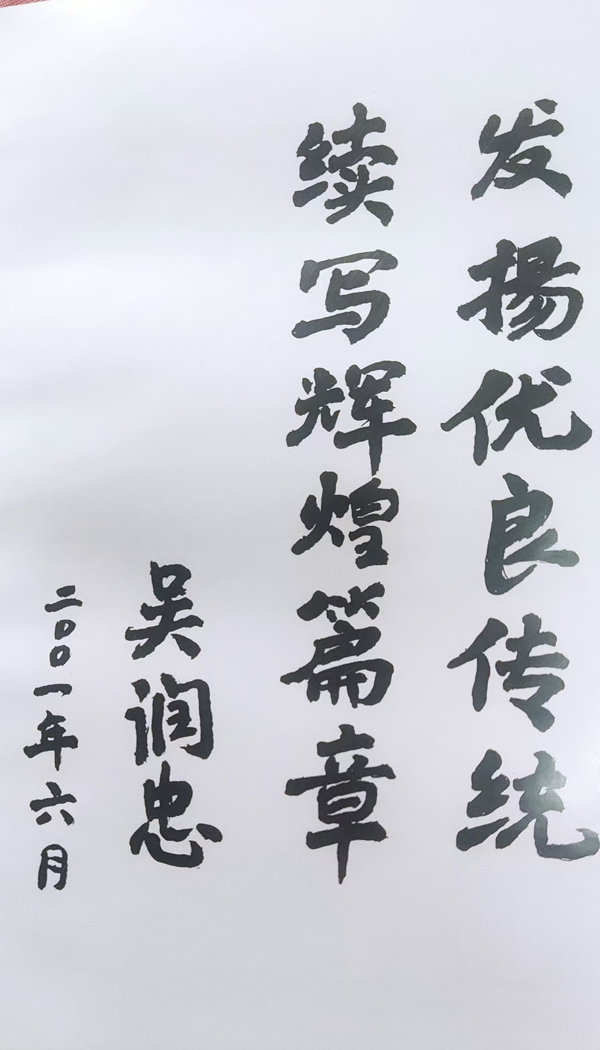 发揚优良传统
续写辉煌篇章
吴润忠
二〇〇一年六月